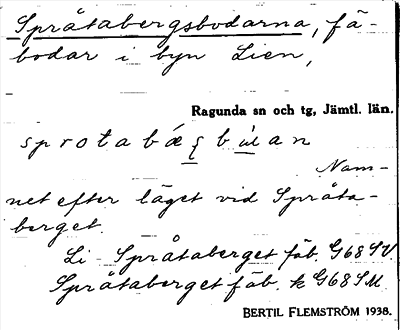 Språtabergsbodarna, fä-
bodar i byn Lien,
Ragunda sn och tg, Jämtl. län.
sprotabæ̨ʂbu̇́an
Nam-
net efter läget vid Språta-
berget.
Li - Språtaberget fäb. G68SV
Språtaberget fäb. k G68SM.
BERTIL FLEMSTRÖM 1938.